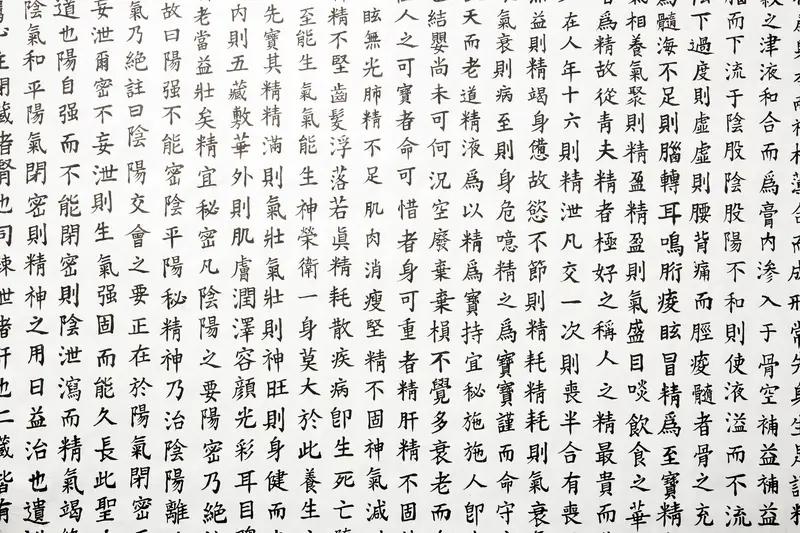 神相薄合而成形常先身生是謂精
穀之津液和合而為膏內滲入于骨空補益補益
腦而下流于陰股陰股陽不和則使液溢而不流
陰下過度則虛虛則腰背痛而脛痠髓者骨之充
髓海不足則腦轉耳鳴胻痠眩冒精為至寶精
氣相養氣聚則精盈精盈則氣盛目啖飲食之華
名為精故從青夫精者極好之稱人之精最貴而
在人年十六則精泄凡交一次則喪半合有喪
無益則精竭身憊故慾不節則精耗精耗則氣衰
氣衰則病至則身危噫精之為寶寶謹而命守
天而老道精液為以精為寶持宜秘施施人卽
結嬰尚未可何況空廢棄棄損不覺多衰老而
人之可寶者命可惜者身可重者精肝精不固
眩無光肺精不足肌肉消瘦堅精不固神氣減
精不堅齒髮浮落若眞精耗散疾病卽生死亡
至能生氣氣能生神榮衛一身莫大於此養生
先寶其精精滿則氣壯氣壯則神旺則身健而
內則五藏敷華外則肌膚潤澤容顏光彩耳目
老當益壯矣精宜秘密凡陰陽之要陽密乃絶
故曰陽强不能密陰平陽秘精神乃治陰陽離
氣乃絶註曰陰陽交會之要正在於陽氣閉密
妄泄爾密不妄泄則生氣强固而能久長此聖
道也陽自强而不能閉密則陰泄瀉而精氣竭
陰氣和平陽氣閉密則精神之用日益治也遺
主閉藏者腎也司疎泄者肝也二藏皆有